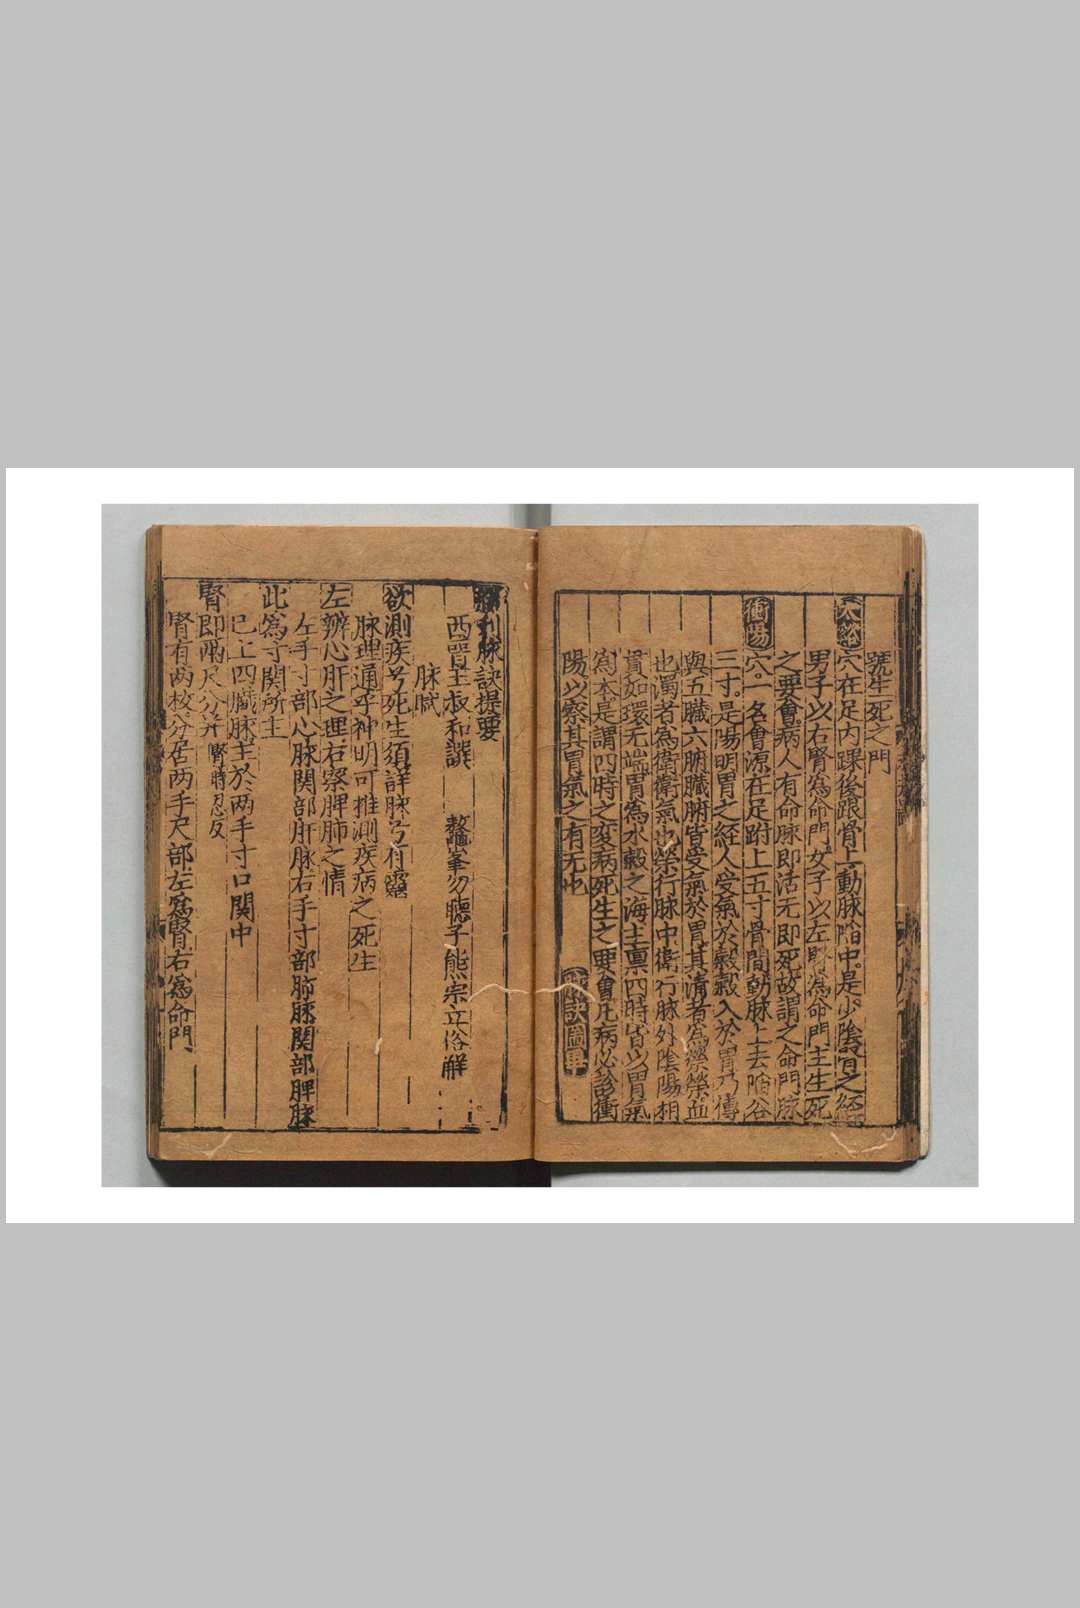 號生死之門
太谿 穴在足內踝後跟骨上動脉陷中是少陰腎之經
男子以右腎為命門女子以左腎為命門主生死
之要會病人有命脉即活无即死故謂之命門脉
衝陽 穴一名會源在足跗上五寸骨間動脉上去陷谷
三寸是陽明胃之經人受氣於穀穀入於胃乃傳
與五臟六腑臟腑皆受氣於胃其清者為榮榮血
也濁者為衛衛氣也榮行脉中衛行脉外陰陽相
貫如環无端胃為水穀之海主稟四時皆以胃氣
為本是謂四時之変病死生之要會凡病必診衝
陽以察其胃氣之有无也
脉訣圖畢
刊脉訣提要
西晉王叔和譔 鰲峯勿聽子熊宗立俗解
脉賦
欲測疾兮死生須詳脉兮有靈
脉理通乎神明可推測疾病之死生
左辨心肝之理右察脾肺之情
左手寸部心脉関部肝脉右手寸部肺脉関部脾脉
此為寸関所主
已上四臟脉主於两手寸口関中
腎即兩尺分并 腎時忍反
腎有两枚分居两手尺部左為腎右為命門